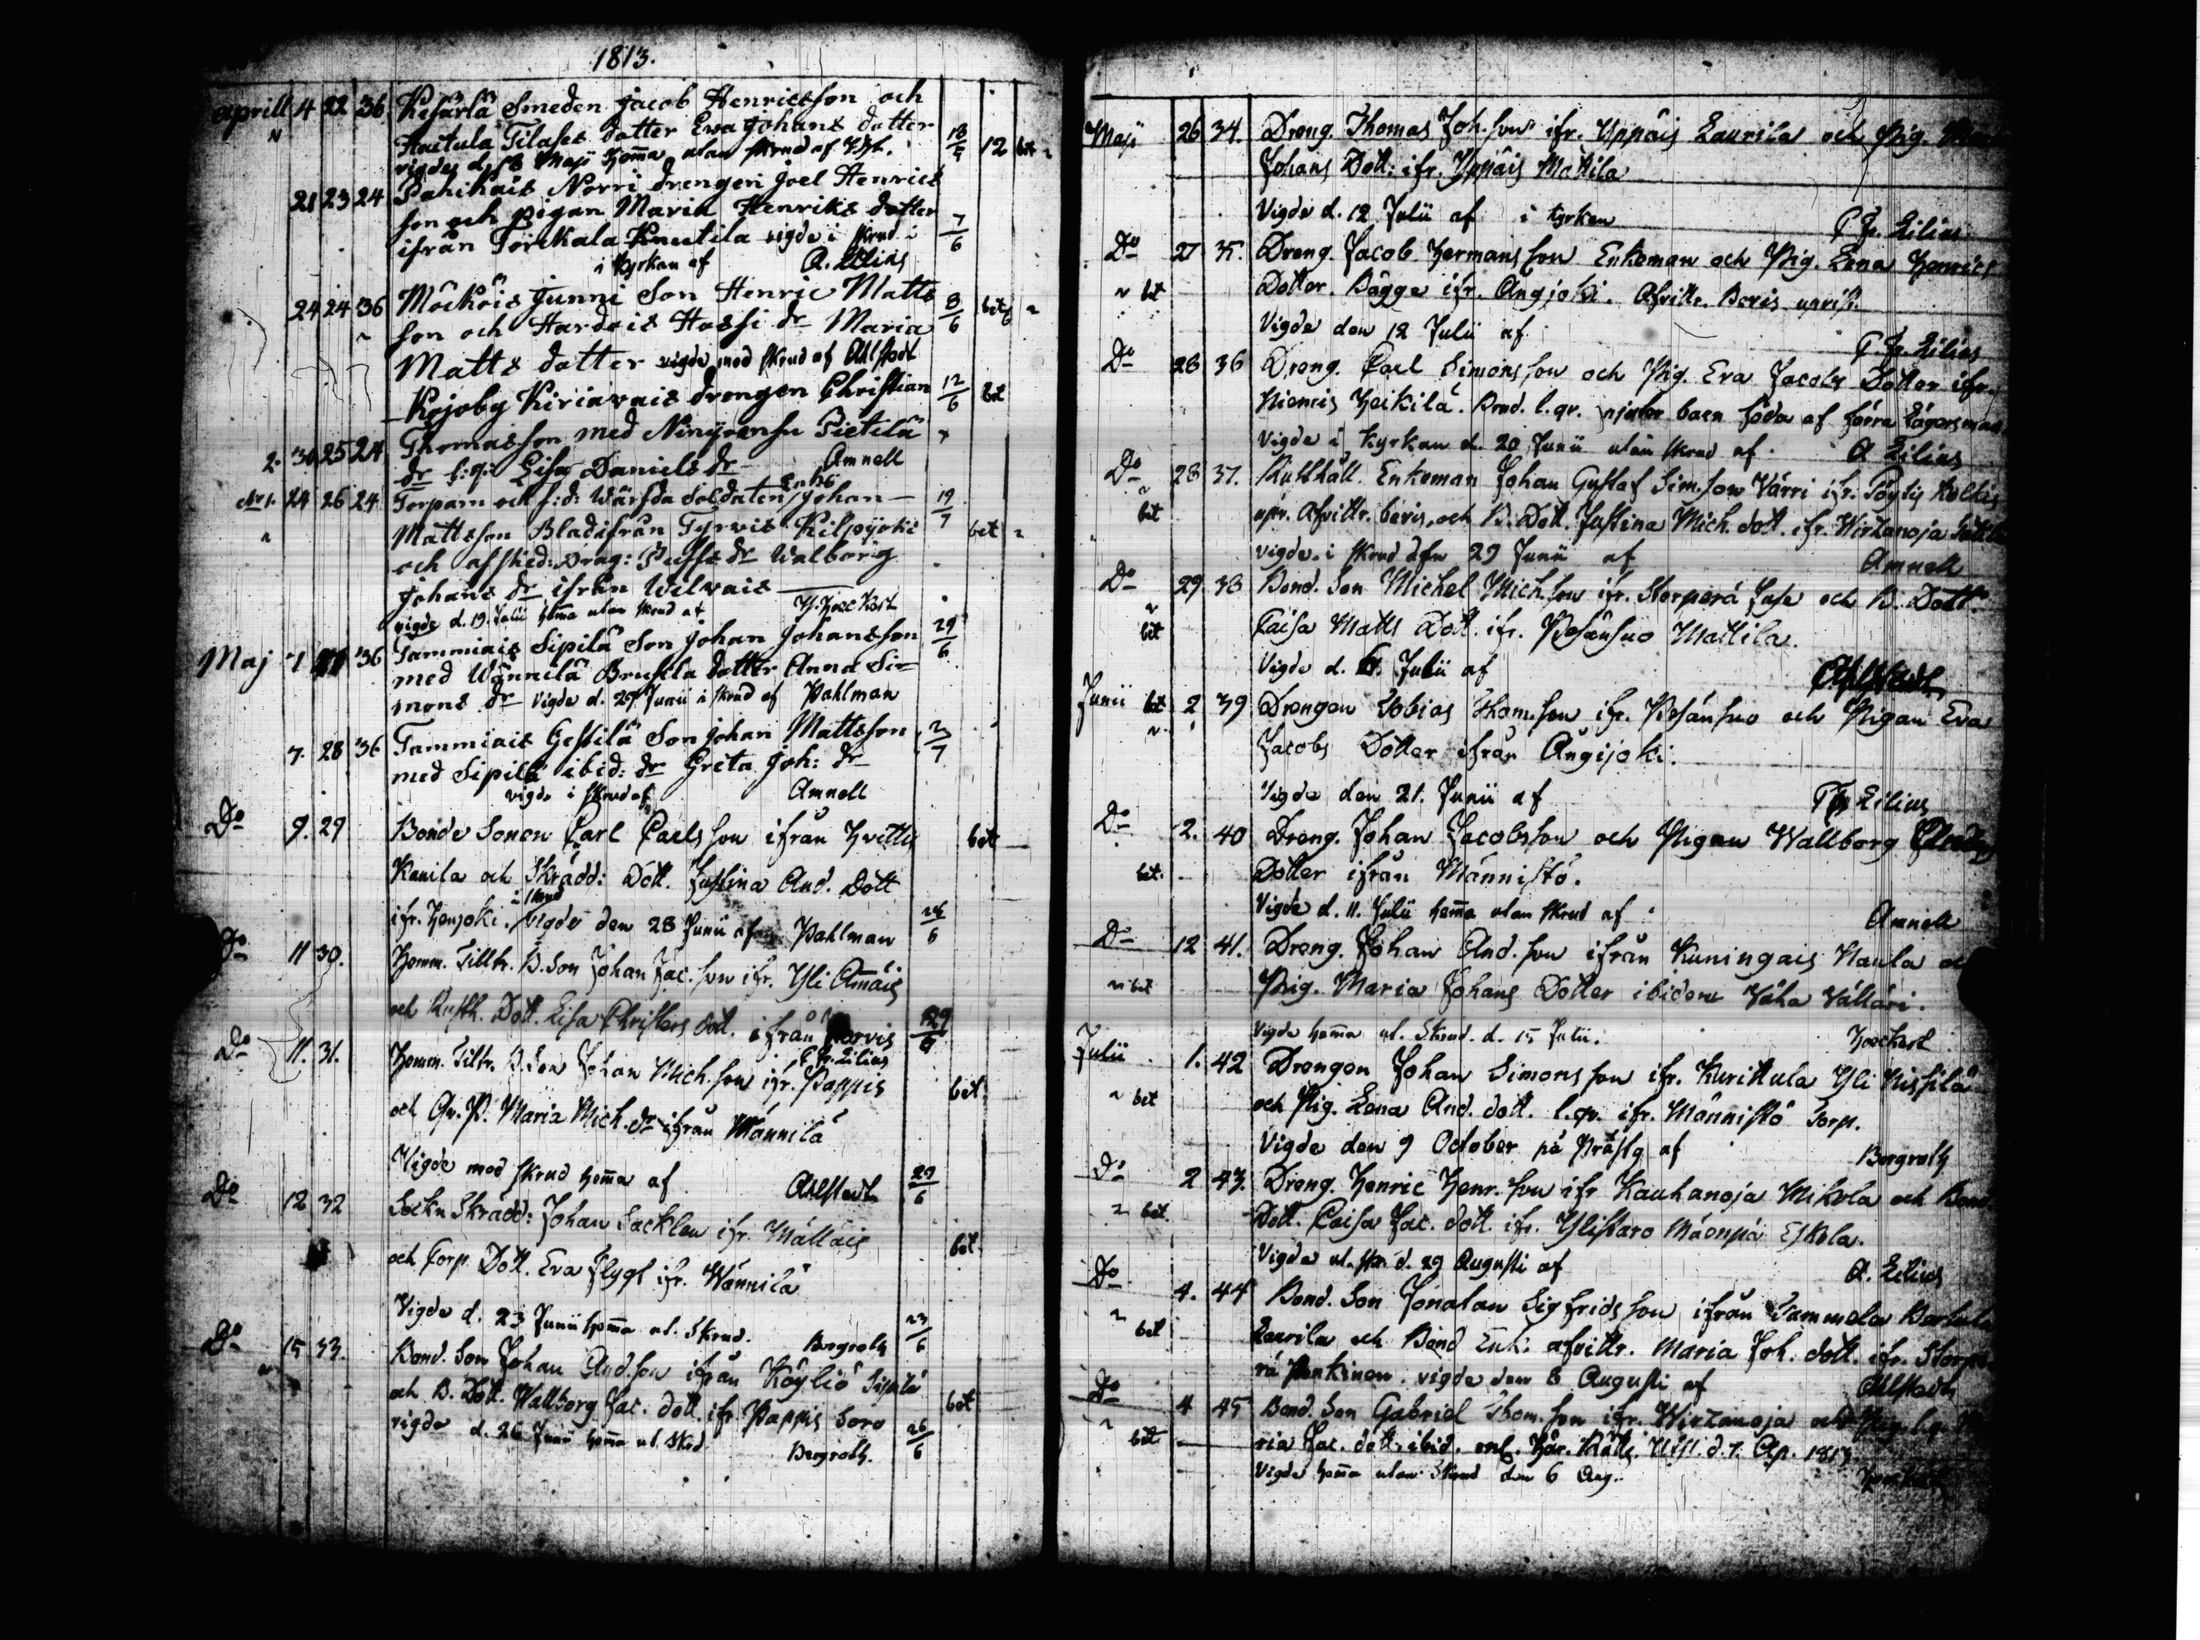 1813.
aprill 4 22 36 Kesärlä Smeden Jacob Henricsson och
Haitula Tilases dotter Eva Johans dotter 18/5 12 bet
vigde d. 18 Maji hema utan skrud af
21 23 24 Norri drengen Joel Henrics
son och pigan Maria Henriks dotter 7/6
ifrån Torckala Knuutila vigde i skrud i
i kyrkan af A. Lilius
24 24 36 Möckois Junni Son Henric Matts 8/6 bet
son och Hardois Hossi dr Maria
Matts dotter vigde med skrud af Ahlstedt
Kojoby Kiriavais drengen Christian 12/6 bet
2. 30 25 24 Thomasson med Ninijoensu Pietilä
dr l: q: Lisa Daniels dr Amnell
24 26 24 Torparn och f: d: Wärfda Soldaten Enkl. Johan 19/7
Mattsson Blad ifrån Tyrvis Kilpijoki bet
och afsked: Drag: dr Walborg
Johans dr ifrån Wilvais
vigde d. 19 Julii hema utan skrud af
Maj 7 36 Tammiais Sipilä Son Johan Johansson 29/6
med Wännilä Brusila dotter Anna Si-
mons dr vigde d. 29 Junii i skrud af Pahlman
7. 28 36 Tammiais Gestilä Son Johan Mattsson 2/7
med Sipilä ibid: dr Greta Joh: dr
vigde i skrud af Amnell
Do 9. 29 Bonde Sonen Carl Carlsson ifrån Hvittis bet
Kanila och Skrädd: Dott. Justina And. Dott
ifr. Honjoki. i skrud Vigde den 28 Junii af Pahlman 28/6
Do 11 30. Hemm. Tilltr. B. Son Johan Jac. son ifr. Yli
och Rusth. Dott. Lisa Christers dott. ifrån 29/6
F. Fr. Lilius
Do 11. 31. Hemm. Tilltr. B. Son Johan Mich. son ifr. Pappis bet.
och Qv. P. Maria Mich. dr ifrån Männilä
Vigde med skrud hema af Ahlstedt 27/6
Do 12 32 Sockn Skrädd: Johan Sacklen ifr. Mällais bet.
och Corp Dott. Eva Flygt ifr. Wännilä
Vigde d. 23 Junii hema ut. Skrud. Bergroth 23/6
Do 15 33. Bond. Son Johan And. son ifrån Köyliö Sipilä
och B. Dott. Wallborg Jac. dott. ifr Pappis Soro bet
vigde d. 26 Junii hema ut. Skrd. Bergroth. 26/6
Maji 26 34. Dreng. Thomas Joh. son ifr. Yppäis Laurila och Pig.
Johans Dott: ifr. Yppäis Mattila
Vigde d. 12 Julii af i kyrkan F Fr. Lilius
Do 27 35. Dreng. Jacob Hermansson Enkeman och Pig. Lena Henrics
bet Dotter Bagge ifr. Angjoki. Afvittr. Bevis uprist.
Vigde den 12 Julii af F Fr. Lilius
Do 28 36 Dreng. Carl Simonsson och Pig. Eva Jacobs Dotter ifr.
Niemis Heikilä. Brud. l. qv. njuter barn föda af förra Lägersman
Vigde i kyrkan d. 20 Junii utan skrud af A Lilius
Do 28 37. Rusthåll. Enkeman Johan Gustaf Sim. son Värri ifr. Pöytis
bet upv. Afvittr. bevis, och B. Dott. Justina Mich. dott. ifr. Wirtanoja
vigde i skrud den 29 Junii af Amnell
Do 29 38 Bond. Son Michel Mich. son ifr. Storperä Juse och B. Dott.
bet Caisa Matts Dott. ifr. Pesänsuo Mattila.
Vigde d. 6. Julii af Ahlstedt
Junii bet 2 39 Drengen Tobias Thom. son ifr. Pesänsuo och Pigan Eva
Jacobs Dotter ifrån Angijoki.
Vigde den 21. Junii af F Fr Lilius
Do 2. 40 Dreng. Johan Jacobsson och Pigan Wallborg
bet. Dotter ifrån Männistö.
Vigde d. 11. Julii hema utan skrud af Amnell
Do 12 41. Dreng. Johan And. son ifrån Kuningais Naula
bet Pig. Maria Johans Dotter ibidem Väha Vällari.
Vigde hema ut. Skrud. d. 15 Julii. Hoeckert
Julii 1. 42 Drengen Johan Simonsson ifr. Kurittula Yli Nissilä
bet och Pig. Lena And. dott. l. qv. ifr. Männistö Torp.
Vigde den 9 October på Prästg af Bergroth
Do 2 43. Dreng. Henric Henr. son ifr Kauhanoja Mikola och Bond
bet Dott. Caisa Jac. dott. ifr. Ylistaro Mäenpä Eskola.
Vigde ut. skr. d. 29 Augusti af A. Lilius
Do 4. 44 Bond. Son Jonatan Sigfridsson ifrån Tammela
bet Laurila och Bond Enk. afvittr. Maria Joh. dott. ifr. Storpe
rä Penkinen. vigde den 8 Augusti af Ahlstedt
Do 4 45 Bond. Son Gabriel Thom. son ifr. Wirtanoja och Pig. l. q.
bet ria Jac. dott. ibid. enl. Här. Rätts Utsl. d. 7. Ap. 1813
Vigde hema utan Skrud den 6 Aug.